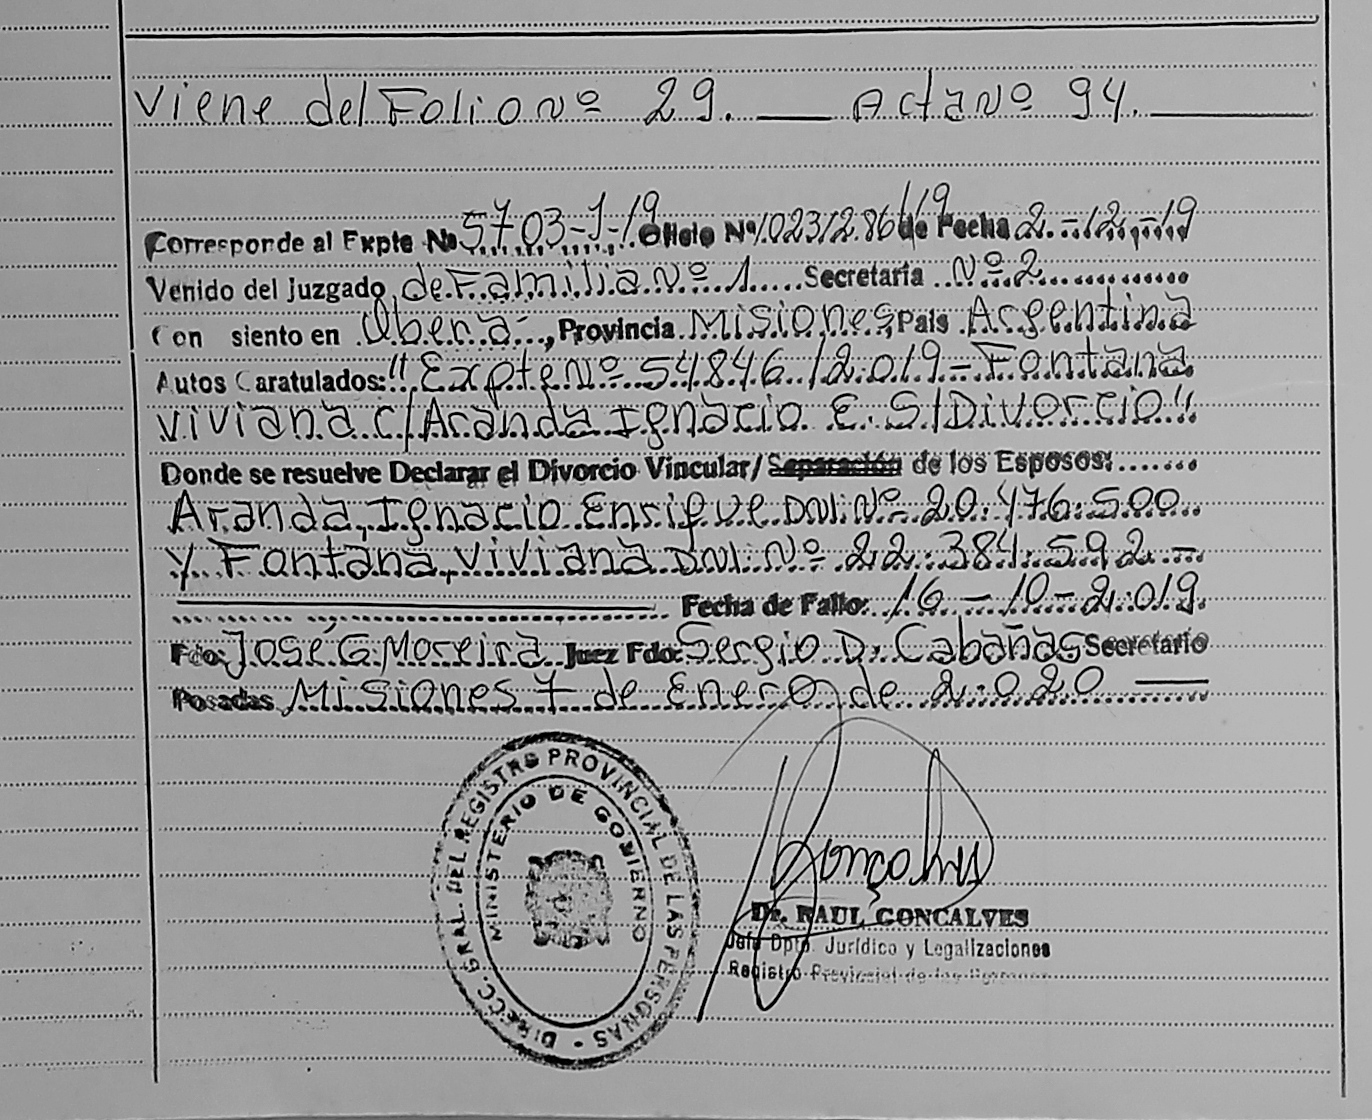 Viene del Folio nº 29. Acta Nº 94.
Corresponde al Expte Nº 5703-1-19 Oficio Nº 1023/286/19 de Fecha 2-12-19
Venido del Juzgado de Familia Nº 1 Secretaría Nº 2
Con siento en Oberá, Provincia Misiones, País Argentina
Autos Caratulados: "Expte Nº 54846/2.019 - Fontana
Viviana c/Aranda Ignacio E. S/Divorcio"
Donde se resuelve Declarar el Divorcio Vincular/Separación de los Esposos:
Aranda, Ignacio Enrique DNI: Nº 20.476.500
y Fontana, Viviana DNI: Nº 22.384.592 -
Fecha de Fallo: 16-10-2.019.
Fdo: José G Moreira Juez Fdo: Sergio D. Cabañas Secretario
Posadas, Misiones 7 de Enero de 2.020
DIRECC. GRAL. DEL REGISTRO PROVINCIAL DE LAS PERSONAS
MINISTERIO DE GOBIERNO
Gonçalves
Dr. RAUL GONCALVES
Jefe Dpto. Jurídico y Legalizaciones
Registro Provincial de las Personas